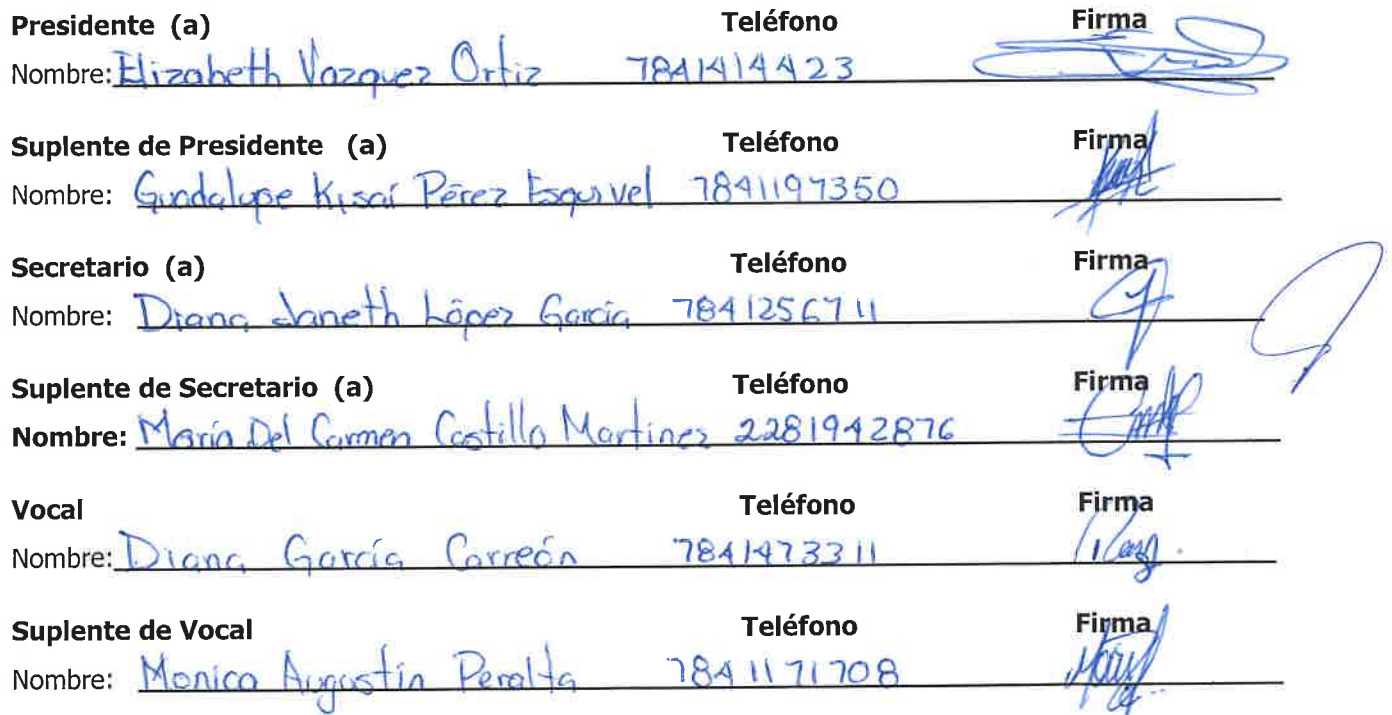 Presidente (a) Teléfono Firma
Nombre: Elizabeth Vazquez Ortiz 7841414423
Suplente de Presidente (a) Teléfono Firma
Nombre: Guadalupe Kisaí Pérez Esquivel 7841197350
Secretario (a) Teléfono Firma
Nombre: Diana Janeth López García 7841256711
Suplente de Secretario (a) Teléfono Firma
Nombre: María Del Carmen Castillo Martinez 2281942876
Vocal Teléfono Firma
Nombre: Diana García Carreón 7841473311
Suplente de Vocal Teléfono Firma
Nombre: Monica Augustín Peralta 7841171708